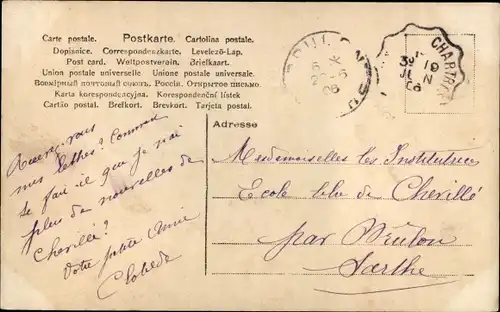 Carte postale. Postkarte. Cartolina postale.
Dopisnice. Correspondenzkarte. Levelező-Lap.
Post card. Weltpostverein. Briefkaart.
Union postale universelle. Unione postale universale.
Всемірный почтовый союзъ. Россія. Открытое письмо.
Karta korespondencyjna. Korespondenční listek
Cartão postal. Brefkort. Brevkort. Tarjeta postal.
CHART
19
JUIN
06
Adresse
Avez-vous
mes lettres? Comment
se fait-il que je n'ai
plus de nouvelles de
Chevillé?
Votre petite Amie
Clotilde
Mesdemoiselles les Institutrices
Ecole libre de Chevillé
par Brûlon
Sarthe